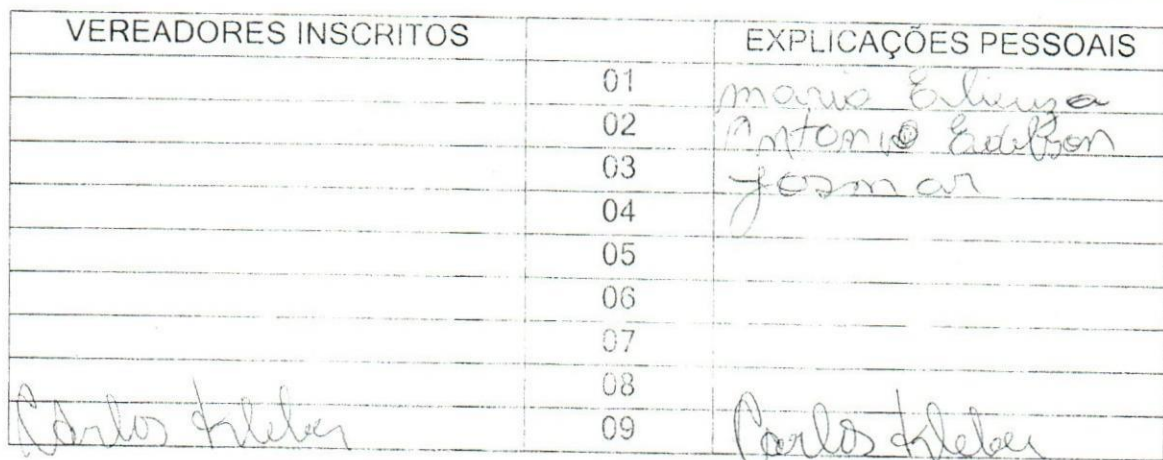 VEREADORES INSCRITOS EXPLICAÇÕES PESSOAIS
01 Maria Erlieuza
02 Antonio Edelson
03 Josmar
04
05
06
07
08
Carlos Kleber 09 Carlos Kleber